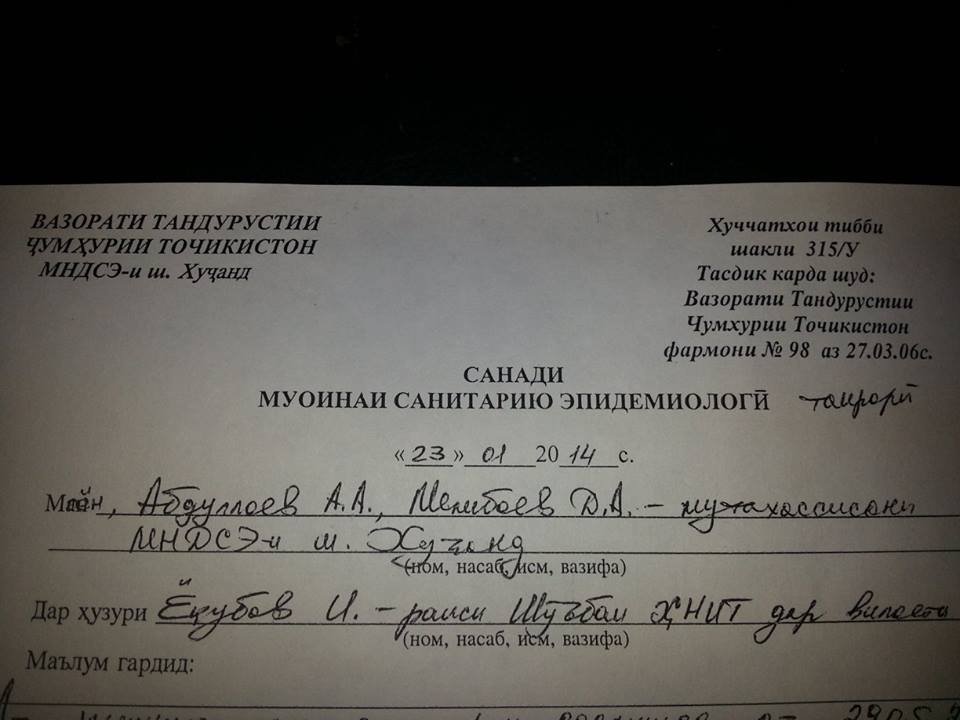 ВАЗОРАТИ ТАНДУРУСТИИ
ҶУМҲУРИИ ТОЧИКИСТОН
МНДСЭ-и ш. Хуҷанд
Хуччатхои тибби
шакли 315/У
Тасдик карда шуд:
Вазорати Тандурустии
Чумхурии Точикистон
фармони № 98 аз 27.03.06с.
САНАДИ
МУОИНАИ САНИТАРИЮ ЭПИДЕМИОЛОГӢ такрорӣ
«23» 01 2014 с.
Абдуллоев А.А., Д.А. – мутахассисони
МНДСЭ-и ш. Хуҷанд
(ном, насаб, исм, вазифа)
Дар ҳузури Ёқубов И. – раиси Шӯъбаи ҲНИТ дар вилояти
(ном, насаб, исм, вазифа)
Маълум гардид: